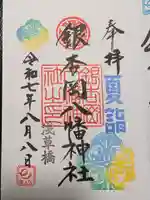 奉拝
夏詣
銀杏岡八幡神社
浅草橋
令和七年八月八日